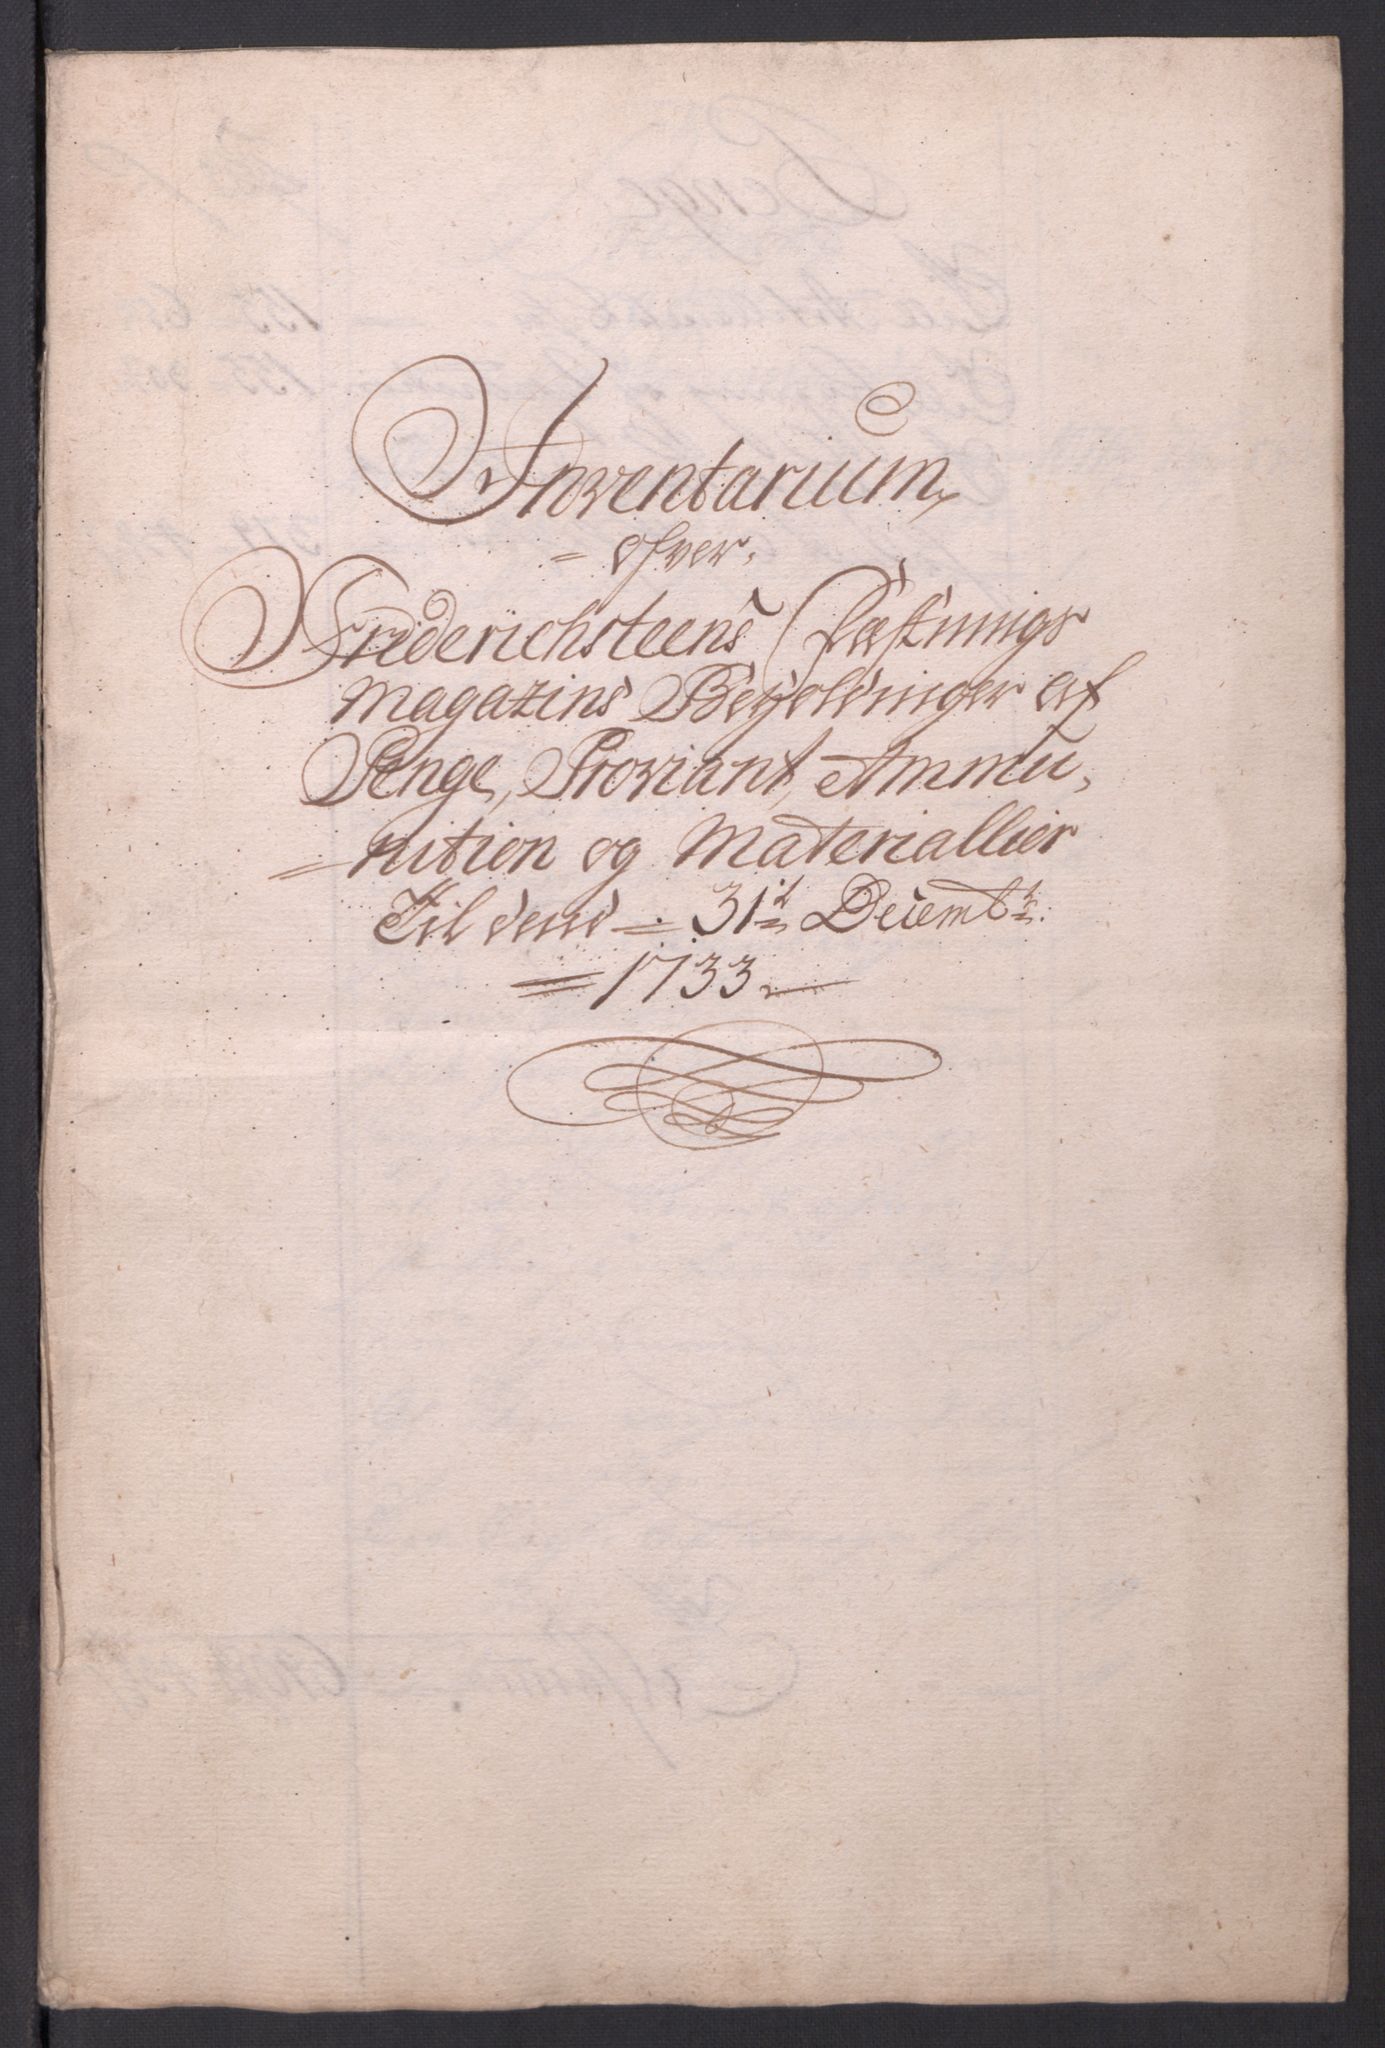 Inventarium
ofver
Friderichsteens Fæstnings
Magazins Beholdninger af
Penge, Proviant, Ammu,
nition og Materiallier
Til dend 31te Decembr:
1733